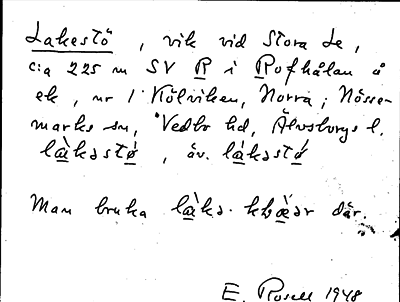 Lakestö, vik vid Stora Le,
c:a 225 m SV R i Rofhålan å
ek, nr 1 Kölviken, Norra; Nösse-
marks sn, Vedbo hd, Älvsborgs l.
là̱kəstǿ̱, äv. lá̱kəstǿ̱
Man bruka là̱kə- där.
E. Rosell 1948